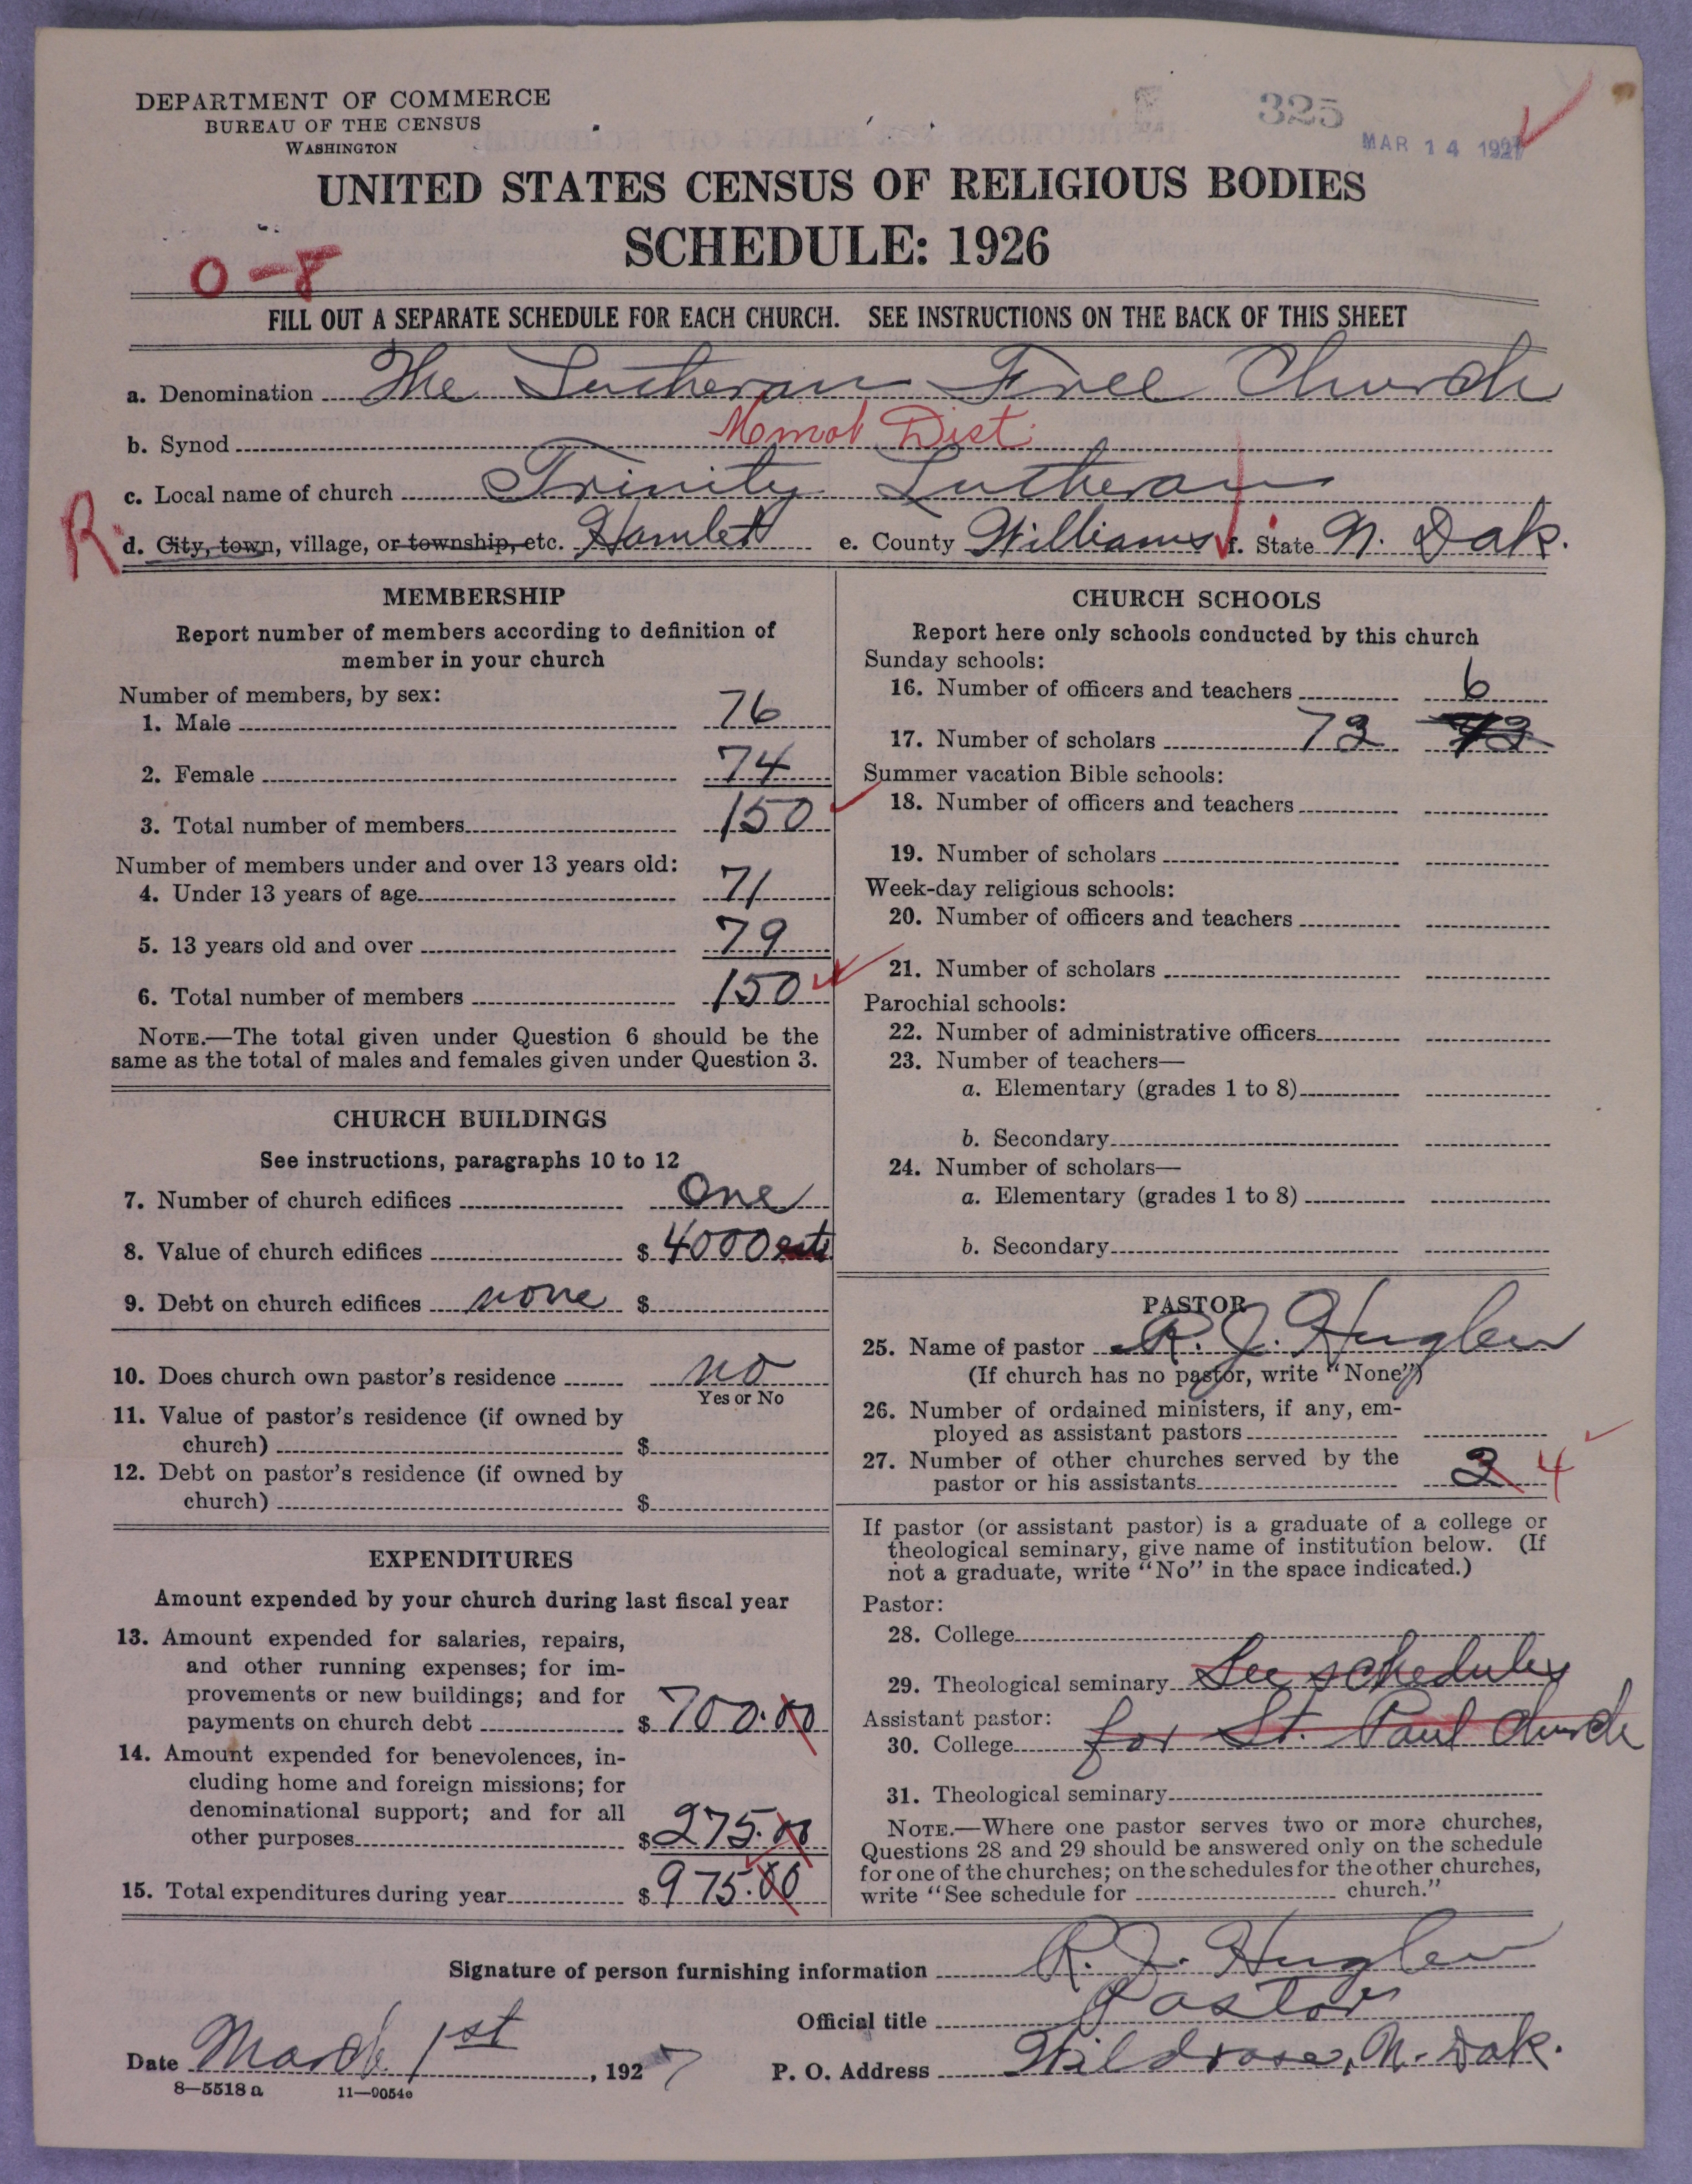 DEPARTMENT OF COMMERCE
BUREAU OF THE CENSUS
WASHINGTON
325
MAR 14 1927
UNITED STATES CENSUS OF RELIGIOUS BODIES
SCHEDULE: 1926
O-8
FILL OUT A SEPARATE SCHEDULE FOR EACH CHURCH. SEE INSTRUCTIONS ON THE BACK OF THIS SHEET
a. Denomination The Lutheran Free Church
b. Synod Dist.
c. Local name of church Trinity Lutheran
R d. City, town, village, or township, etc. Hamlet e. County Williams f. State N. Dak.
MEMBERSHIP
Report number of members according to definition of
member in your church
Number of members, by sex:
1. Male 76
2. Female 74
3. Total number of members 150
Number of members under and over 13 years old:
4. Under 13 years of age 71
5. 13 years old and over 79
6. Total number of members 150
NOTE.—The total given under Question 6 should be the
same as the total of males and females given under Question 3.
CHURCH BUILDINGS
See instructions, paragraphs 10 to 12
7. Number of church edifices One
8. Value of church edifices $ 4000
9. Debt on church edifices none $
10. Does church own pastor's residence no
Yes or No
11. Value of pastor's residence (if owned by
church) $
12. Debt on pastor's residence (if owned by
church) $
EXPENDITURES
Amount expended by your church during last fiscal year
13. Amount expended for salaries, repairs,
and other running expenses; for im-
provements or new buildings; and for
payments on church debt $ 700.00
14. Amount expended for benevolences, in-
cluding home and foreign missions; for
denominational support; and for all
other purposes $ 275.00
15. Total expenditures during year $ 975.00
CHURCH SCHOOLS
Report here only schools conducted by this church
Sunday schools:
16. Number of officers and teachers 6
17. Number of scholars 73
Summer vacation Bible schools:
18. Number of officers and teachers
19. Number of scholars
Week-day religious schools:
20. Number of officers and teachers
21. Number of scholars
Parochial schools:
22. Number of administrative officers
23. Number of teachers—
a. Elementary (grades 1 to 8)
b. Secondary
24. Number of scholars—
a. Elementary (grades 1 to 8)
b. Secondary
PASTOR
25. Name of pastor R. J. Huglen
(If church has no pastor, write "None")
26. Number of ordained ministers, if any, em-
ployed as assistant pastors
27. Number of other churches served by the
pastor or his assistants 3 4
If pastor (or assistant pastor) is a graduate of a college or
theological seminary, give name of institution below. (If
not a graduate, write "No" in the space indicated.)
Pastor:
28. College
29. Theological seminary See schedules
Assistant pastor:
30. College for St. Paul Church
31. Theological seminary
NOTE.—Where one pastor serves two or more churches,
Questions 28 and 29 should be answered only on the schedule
for one of the churches; on the schedules for the other churches,
write "See schedule for church."
Signature of person furnishing information R. J. Huglen
Official title Pastor
Date March 1st, 1927 P. O. Address Wildrose, N. Dak.
8—5518a 11—9054c